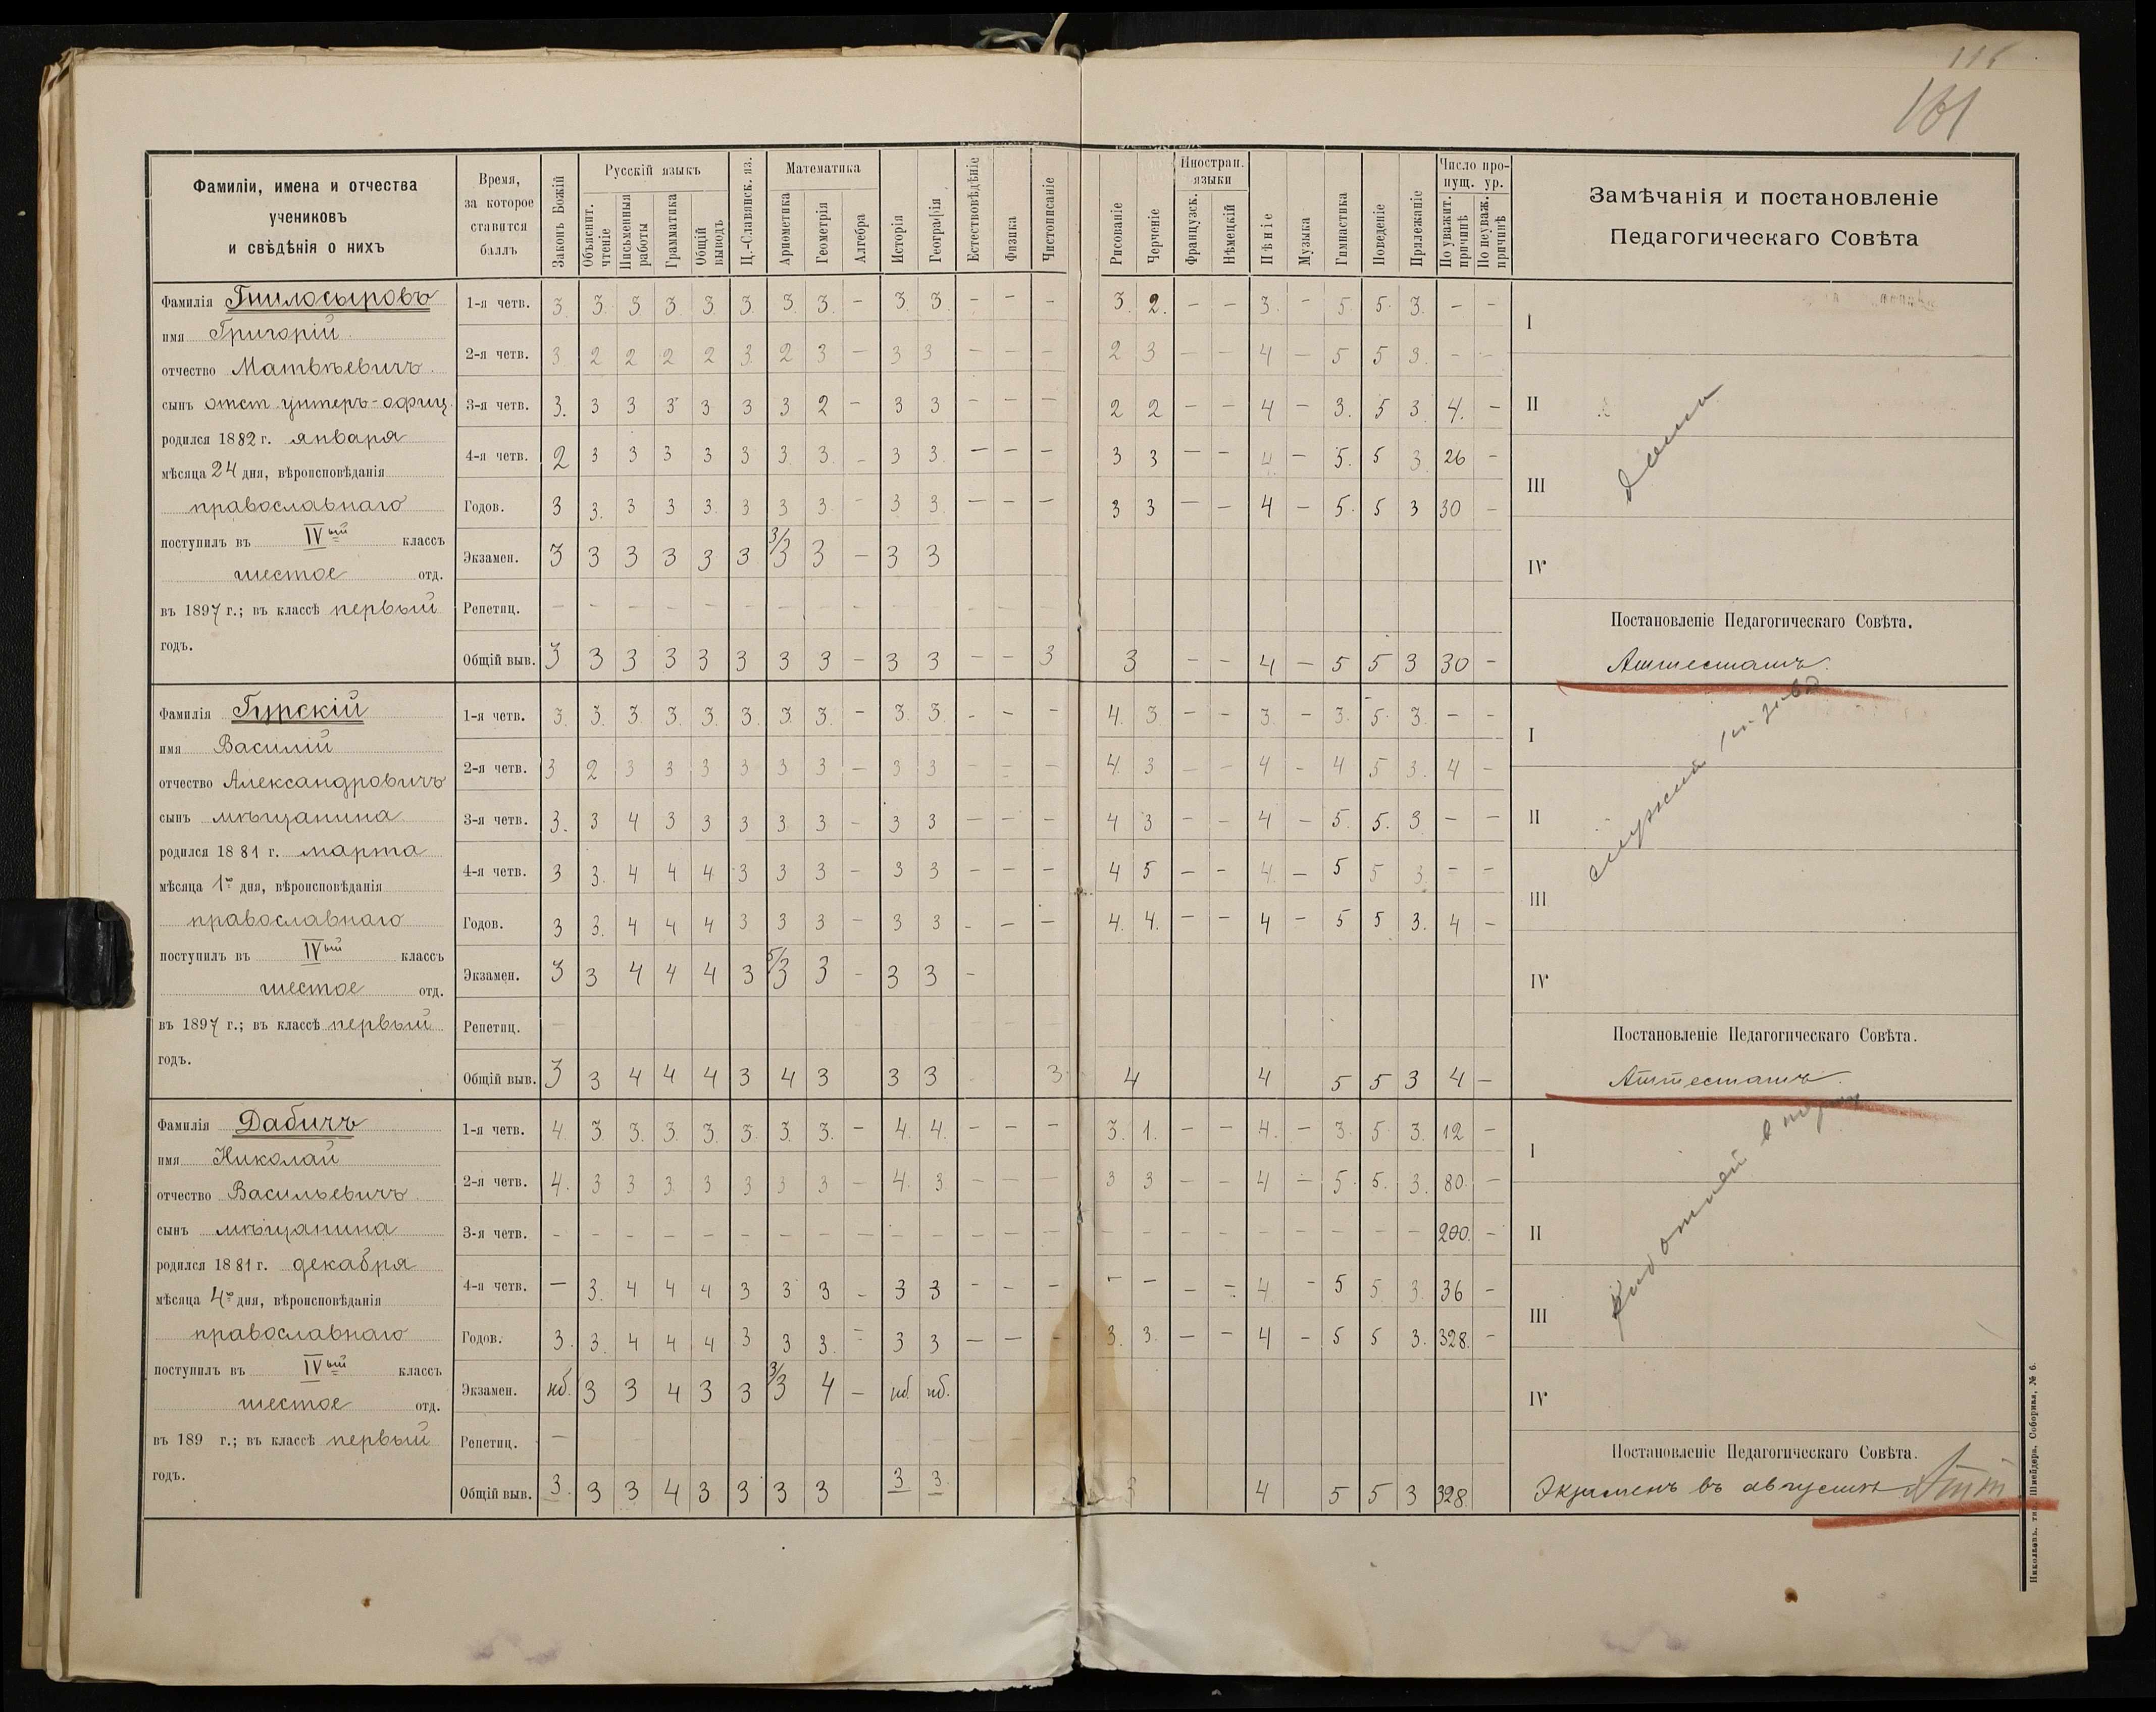 116
161
Фамиліи, имена и отчества
учениковъ
и свѣдѣнія о нихъ
Время,
за которое
ставится
баллъ
Законъ Божій
Русскій языкъ
Объяснит. чтеніе
Письменныя работы
Грамматика
Общій выводъ
Ц.-Славянск. яз.
Математика
Ариѳметика
Геометрія
Алгебра
Исторія
Географія
Естествовѣдѣніе
Физика
Чистописаніе
Рисованіе
Черченіе
Иностран. языки
Французск.
Нѣмецкій
Пѣніе
Музыка
Гимнастика
Поведеніе
Прилежаніе
Число пропущ. ур.
По уважит. причинѣ
По неуваж. причинѣ
Замѣчанія и постановленіе
Педагогическаго Совѣта
Фамилія Гнилосыровъ
имя Григорій
отчество Матвѣевичъ
сынъ отст. унтеръ-офиц.
родился 1882 г. января
мѣсяца 24 дня, вѣроисповѣданія
православнаго
поступилъ въ IVый классъ
шестое отд.
въ 1897 г.; въ классѣ первый
годъ.
1-я четв. 3. 3. 3 3. 3. 3. 3. 3. – 3. 3. – – – 3. 2. – – 3. – 5. 5. 3. – –
2-я четв. 3 2 2 2 2 3. 2 3 – 3 3 – – – 2 3 – – 4 – 5 5 3. – –
3-я четв. 3. 3 3 3 3 3 3 2 – 3 3 – – – 2 2 – – 4 – 3. 5 3 4. –
4-я четв. 2 3 3 3 3 3 3. 3. – 3 3. – – – 3 3 – – 4. – 5. 5 3 26 –
Годов. 3 3. 3 3 3. 3 3 3. – 3 3. – – – 3 3 – – 4 – 5. 5 3 30 –
Экзамен. 3 3 3 3 3 3 3/3 3 – 3 3
Репетиц. – – – – – – – – – – – – –
Общій выв. 3 3 3 3 3 3 3 3 – 3 3 – – 3 3 – – 4 – 5 5 3 30 –
I
II
III
IV
Постановленіе Педагогическаго Совѣта.
Аттестатъ.
Фамилія Гурскій
имя Василій
отчество Александровичъ
сынъ мѣщанина
родился 1881 г. марта
мѣсяца 1го дня, вѣроисповѣданія
православнаго
поступилъ въ IVый классъ
шестое отд.
въ 1897 г.; въ классѣ первый
годъ.
1-я четв. 3. 3. 3. 3. 3. 3. 3. 3. – 3. 3. – – – 4. 3. – – 3. – 3. 5. 3. – –
2-я четв. 3 2 3 3 3 3 3 3 – 3 3 – – – 4. 3 – – 4 – 4 5 3. 4 –
3-я четв. 3. 3 4 3 3 3 3. 3 – 3 3 – – – 4 3 – – 4 – 5. 5. 3 – –
4-я четв. 3 3. 4 4 4 3 3 3 – 3 3 – – – 4 5 – – 4. – 5 5 3. – –
Годов. 3 3. 4 4 4 3 3 3 – 3 3 – – – 4. 4. – – 4 – 5 5 3. 4 –
Экзамен. 3 3 4 4 4 3 5/3 3 – 3 3 –
Репетиц. –
Общій выв. 3 3 4 4 4 3 4 3 3 3 3 4 4 5 5 3 4 –
I
служит
II
III
IV
Постановленіе Педагогическаго Совѣта.
Аттестатъ.
Фамилія Дабичъ
имя Николай
отчество Васильевичъ
сынъ мѣщанина
родился 1881 г. декабря
мѣсяца 4го дня, вѣроисповѣданія
православнаго
поступилъ въ IVый классъ
шестое отд.
въ 189 г.; въ классѣ первый
годъ.
1-я четв. 4 3. 3. 3. 3. 3. 3. 3. – 4. 4. – – – 3. 1. – – 4. – 3. 5. 3. 12 –
2-я четв. 4. 3 3 3. 3 3 3 3 – 4. 3. – – – 3 3 – – 4 – 5. 5. 3. 80. –
3-я четв. – – – – – – – – – – – – – – – – – – – – – – – 200. –
4-я четв. – 3. 4 4 4 3 3 3 – 3 3 – – – – – – – 4. – 5 5 3. 36 –
Годов. 3. 3. 4 4 4 3 3 3. – 3 3 – – – 3. 3. – – 4 – 5 5 3. 328. –
Экзамен. нб. 3 3 4 3 3 3/3 4 – нб. нб.
Репетиц. –
Общій выв. 3. 3 3 4 3 3 3 3 3 3. 3 4 5 5 3 328.
I
II
III
IV
Постановленіе Педагогическаго Совѣта.
Экзаменъ въ августѣ Атт
Николаевъ, тип. Шнейдера, Соборная, № 6.